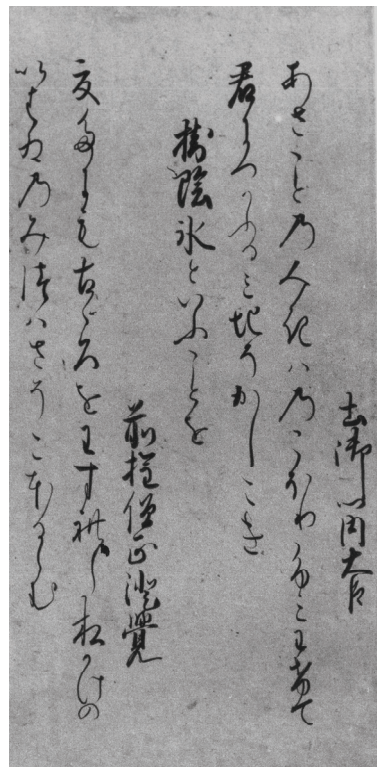 土御門内大臣
あさことのみきはのこほりふみわけて
君につかふるみちそかしこき
樹陰氷といふことを
前権僧正澄覚
夏たにも をわすれし松かけの
いはゐのみつはさそこほるらむ